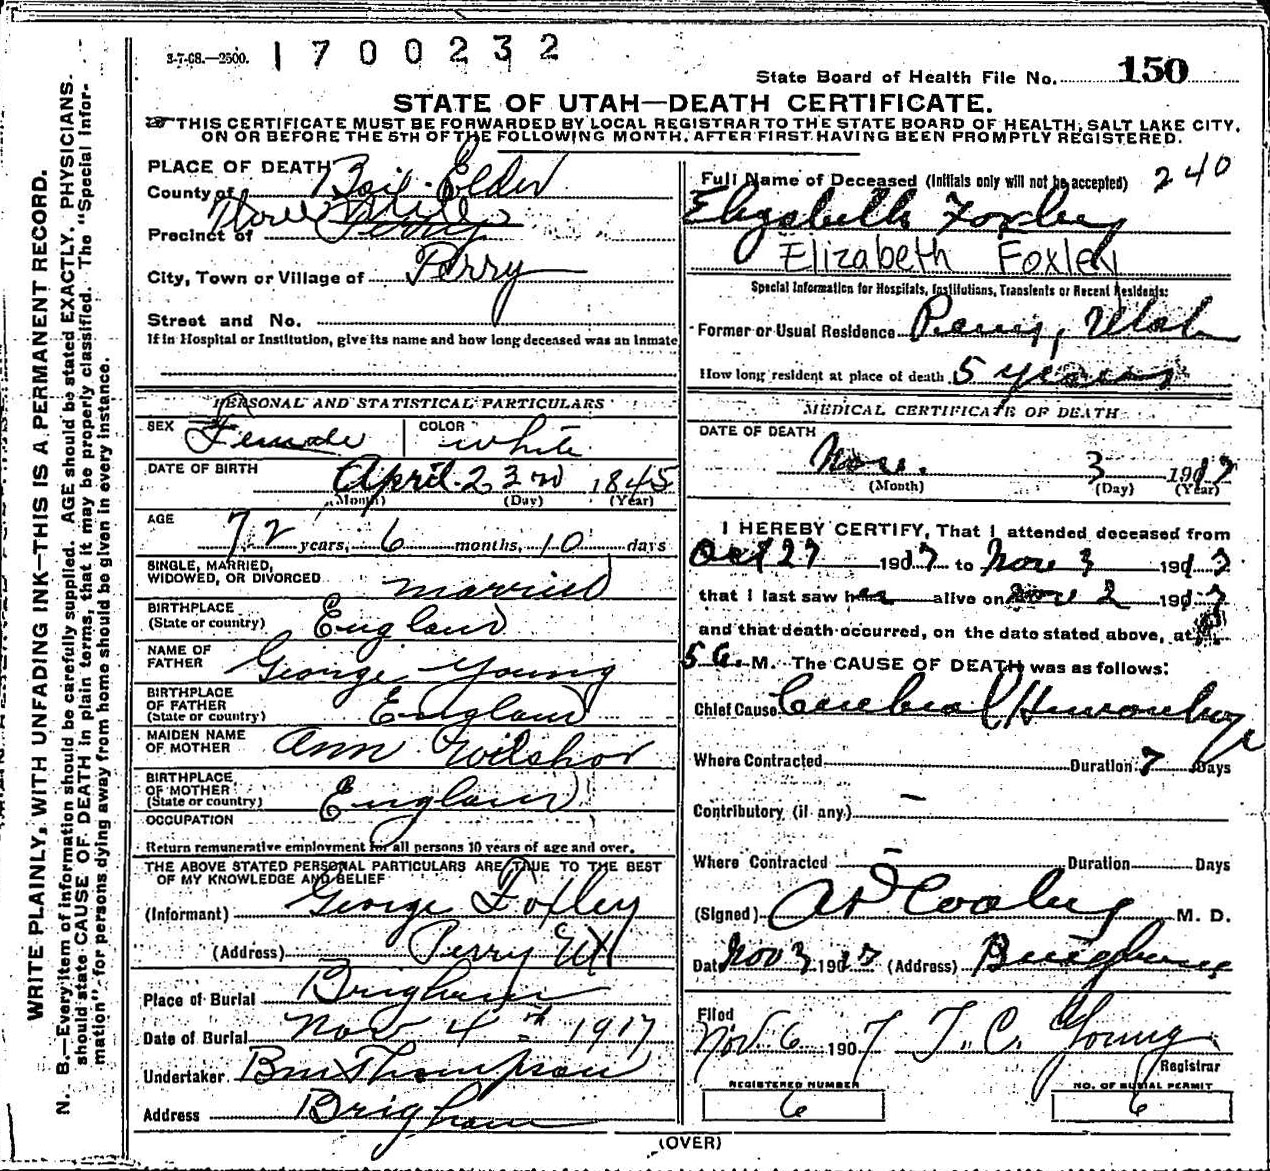 3-7-08.—2500. 1700232
State Board of Health File No. 150
STATE OF UTAH—DEATH CERTIFICATE.
THIS CERTIFICATE MUST BE FORWARDED BY LOCAL REGISTRAR TO THE STATE BOARD OF HEALTH, SALT LAKE CITY,
ON OR BEFORE THE 5TH OF THE FOLLOWING MONTH, AFTER FIRST HAVING BEEN PROMPTLY REGISTERED.
WRITE PLAINLY, WITH UNFADING INK—THIS IS A PERMANENT RECORD.
N. B.—Every item of information should be carefully supplied. AGE should be stated EXACTLY. PHYSICIANS
should state CAUSE OF DEATH in plain terms, that it may be properly classified. The "Special Infor-
mation" for persons dying away from home should be given in every instance.
PLACE OF DEATH
County of Box Elder
Three Mile
Precinct of Perry
City, Town or Village of Perry
Street and No.
If in Hospital or Institution, give its name and how long deceased was an inmate
PERSONAL AND STATISTICAL PARTICULARS
SEX Female COLOR white
DATE OF BIRTH
April 23rd 1845
(Month) (Day) (Year)
AGE
72 years, 6 months, 10 days
SINGLE, MARRIED,
WIDOWED, OR DIVORCED married
BIRTHPLACE
(State or country) England
NAME OF
FATHER George Young
BIRTHPLACE
OF FATHER
(State or country) England
MAIDEN NAME
OF MOTHER Ann Wilshor
BIRTHPLACE
OF MOTHER
(State or country) England
OCCUPATION
Return remunerative employment for all persons 10 years of age and over.
THE ABOVE STATED PERSONAL PARTICULARS ARE TRUE TO THE BEST
OF MY KNOWLEDGE AND BELIEF
(Informant) George Foxley
(Address) Perry Ut
Place of Burial Brigham
Date of Burial Nov 4th 1917
Undertaker Thompson
Address Brigham
Full Name of Deceased (Initials only will not be accepted) 240
Elizabeth Foxley
Elizabeth Foxley
Special Information for Hospitals, Institutions, Transients or Recent Residents:
Former or Usual Residence Perry, Utah
How long resident at place of death 5 years
MEDICAL CERTIFICATE OF DEATH
DATE OF DEATH
Nov. 3 1917
(Month) (Day) (Year)
I HEREBY CERTIFY, That I attended deceased from
Oct 27 1907 to Nov 3 1917
that I last saw her alive on Nov 2 1907
and that death occurred, on the date stated above, at
5 a. M. The CAUSE OF DEATH was as follows:
Chief Cause Cerebral Hemorrhage
Where Contracted Duration 7 Days
Contributory (if any) —
Where Contracted — Duration Days
(Signed) A D Cooley M. D.
Date Nov 3 1917 (Address) Brigham
Filed
Nov. 6 1907 T. C. Young
Registrar
REGISTERED NUMBER
6
NO. OF BURIAL PERMIT
6
(OVER)